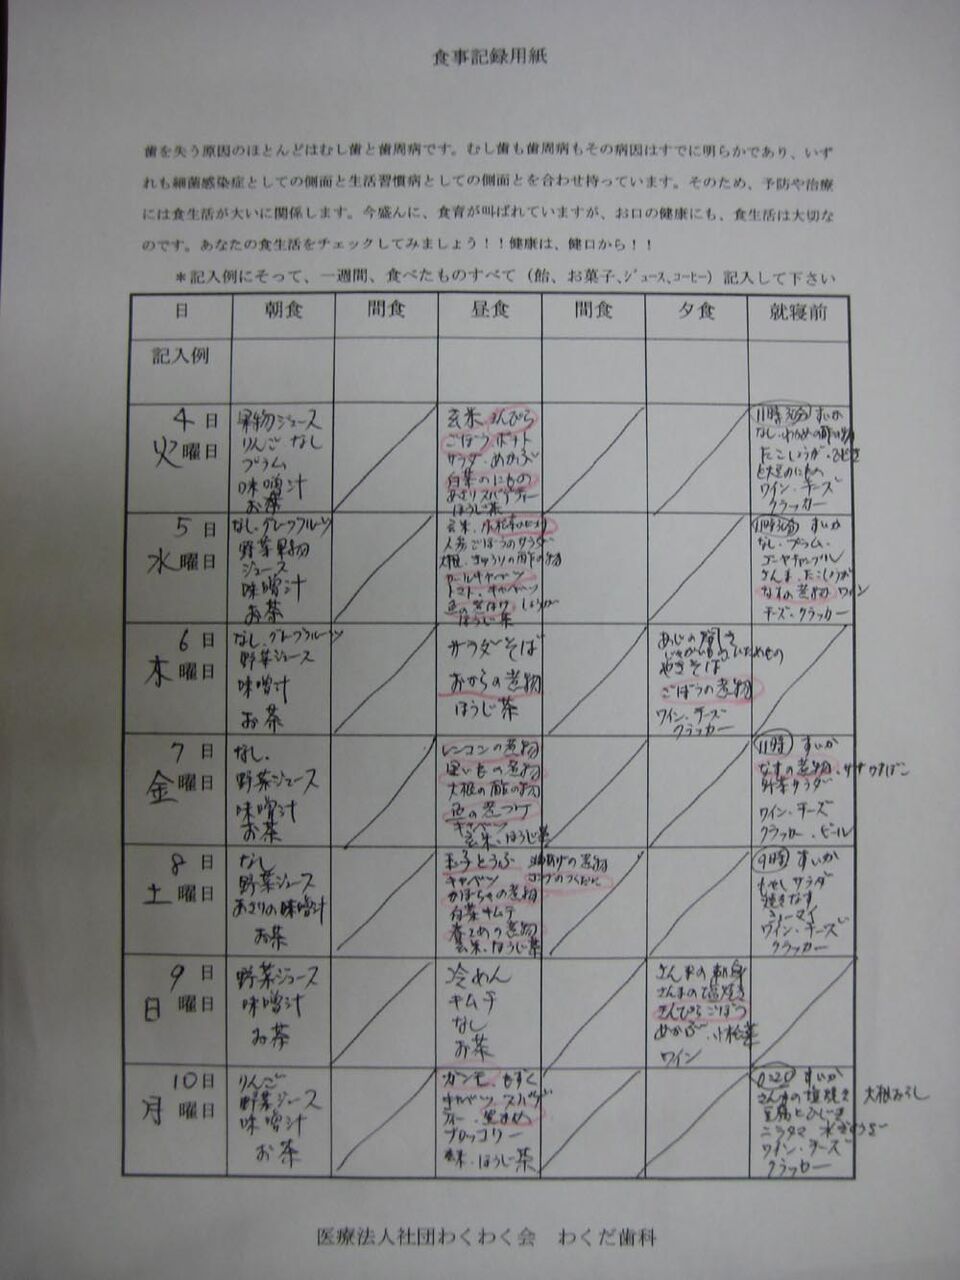 食事記録用紙
歯を失う原因のほとんどはむし歯と歯周病です。むし歯も歯周病もその病因はすでに明らかであり、いず
れも細菌感染症としての側面と生活習慣病としての側面とを合わせ持っています。そのため、予防や治療
には食生活が大いに関係します。今盛んに、食育が叫ばれていますが、お口の健康にも、食生活は大切な
のです。あなたの食生活をチェックしてみましょう！！健康は、健口から！！
＊記入例にそって、一週間、食べたものすべて（飴、お菓子、ｼﾞｭｰｽ､ｺｰﾋｰ）記入して下さい
日 朝食 間食 昼食 間食 夕食 就寝前
記入例
4日
火曜日
果物ジュース
りんご なし
プラム
味噌汁
お茶
玄米 きんぴら
ごぼう ポテト
サラダ・めかぶ
白菜のにもの
あさりスパゲティー
ほうじ茶
11時30分 すいか
なし・わかめの酢の物
ワイン・チーズ
クラッカー
5日
水曜日
なし・グレープフルーツ
野菜果物
ジュース
味噌汁
お茶
玄米・
人参ごぼうのサラダ
大根・きゅうりの酢の物
ロールキャベツ
トマト・キャベツ
ほうじ茶
すいか
なし・プラム・
ゴーヤチャンプル
なすの煮物 ワイン
チーズ・クラッカー
6日
木曜日
なし・グレープフルーツ
野菜ジュース
味噌汁
お茶
サラダそば
おからの煮物
ほうじ茶
あじの開き
やきそば
ごぼうの煮物
ワイン・チーズ
クラッカー
7日
金曜日
なし・
野菜ジュース
味噌汁
お茶
レンコンの煮物
大根の酢の物
キャベツ
玄米・ほうじ茶
11時 すいか
なすの煮物・
野菜サラダ
ワイン・チーズ
クラッカー・ビール
8日
土曜日
なし
野菜ジュース
あさりの味噌汁
お茶
玉子とうふ 油あげの煮物
キャベツ
かぼちゃの煮物
白菜キムチ
玄米・ほうじ茶
9時 すいか
もやしサラダ
焼きなす
シューマイ
ワイン・チーズ
クラッカー
9日
日曜日
野菜ジュース
味噌汁
お茶
冷めん
キムチ
なし
お茶
さんまの刺身
さんまの塩焼き
きんぴらごぼう
めかぶ・小松菜
ワイン
10日
月曜日
りんご
野菜ジュース
味噌汁
お茶
ガンモ・もずく
キャベツ・スパゲ
ティー・黒まめ
ブロッコリー
玄米・ほうじ茶
すいか
さんまの塩焼き 大根おろし
豆腐とひじき
ニラタマ 水ぎょうざ
ワイン・チーズ
クラッカー
医療法人社団わくわく会　わくだ歯科